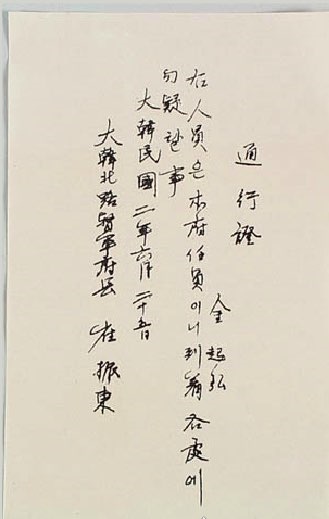 通行證
金 起弘
右人員은 本府任員이니 到着 各處에
勿疑할 事
大韓民國 二年 六月 二十五日
大韓北路督軍府長 崔振東